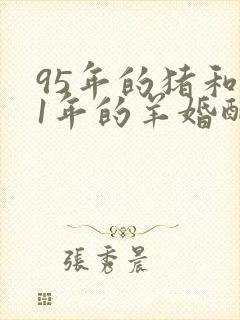 95年的猪和
1年的羊婚配
張秀晨